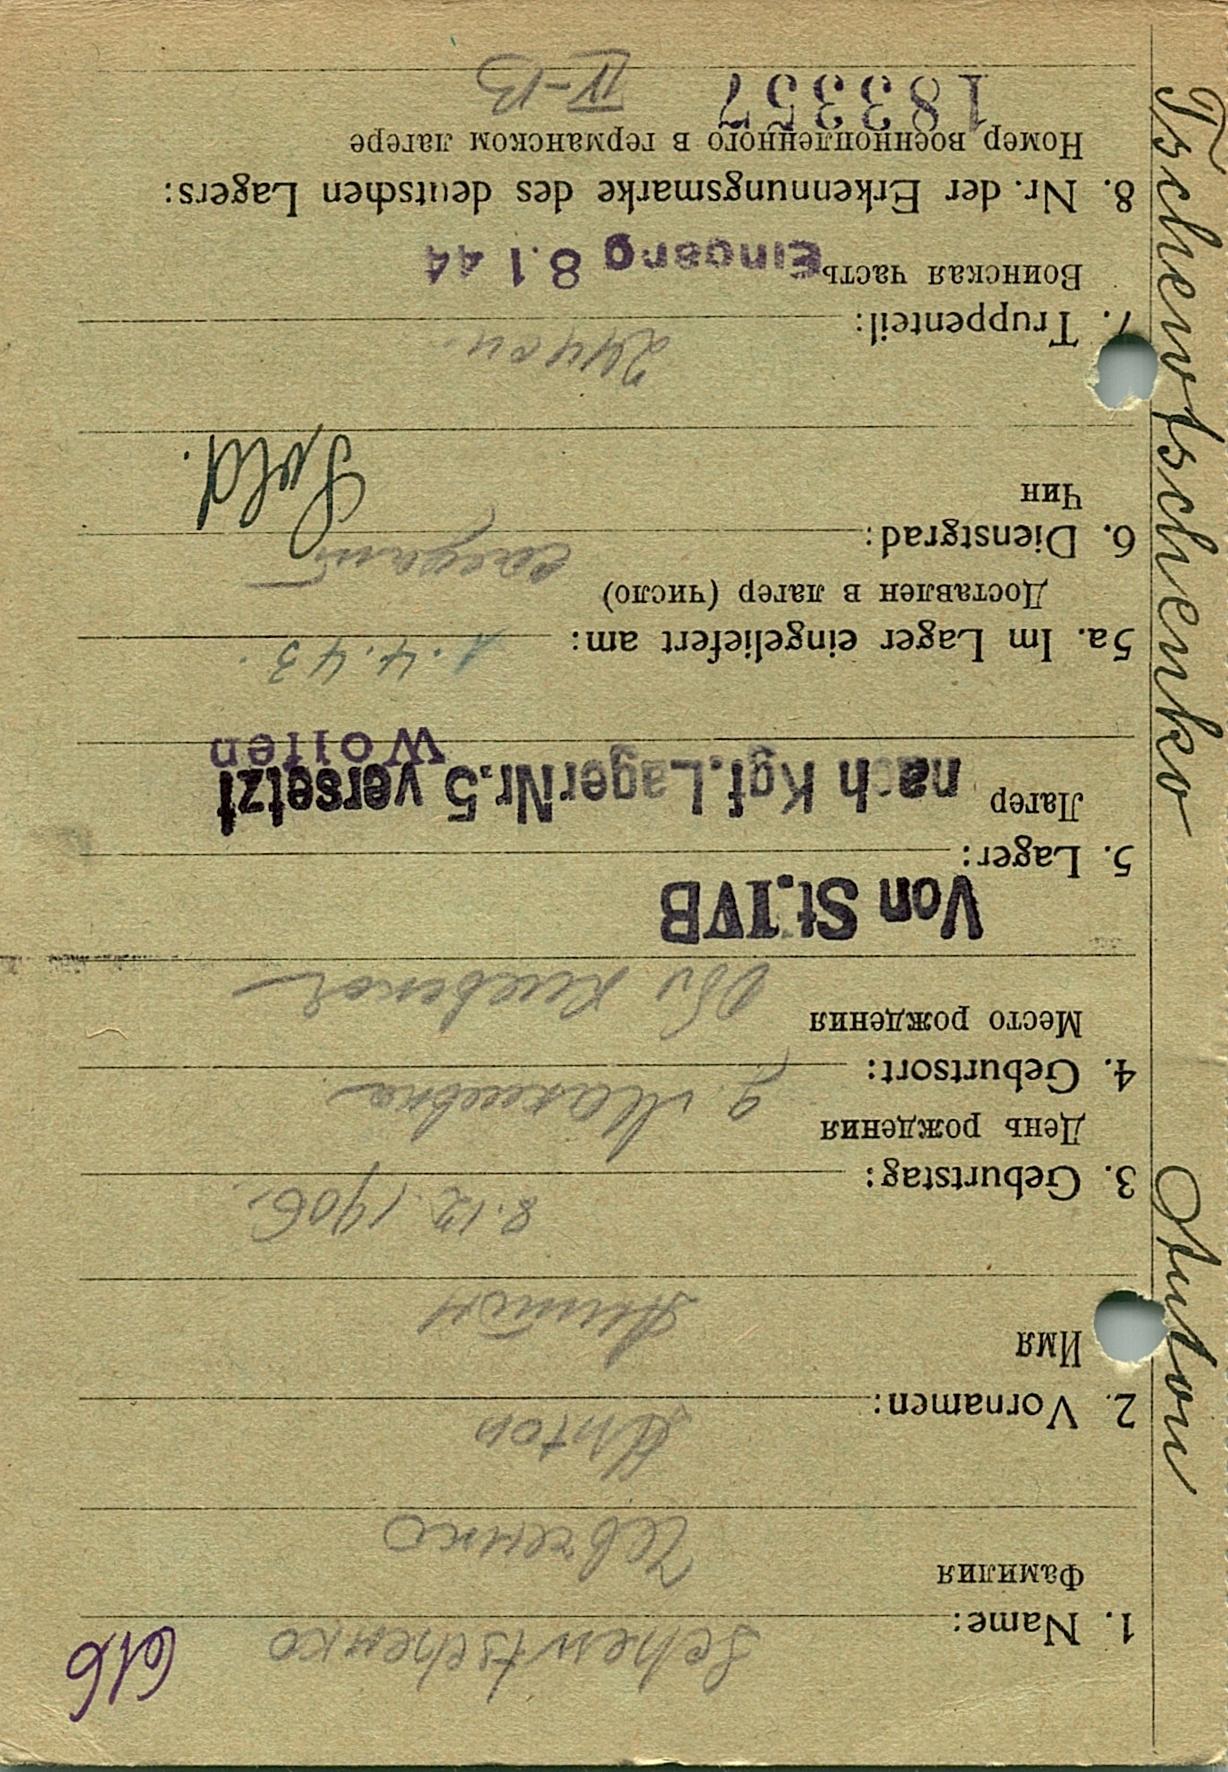 Tschewtschenko Anton
616
1. Name: Schewtschenko
Фамилия
Чевченко
2. Vornamen: Anton
Имя
Антон
3. Geburtstag: 8.12.1906.
День рождения
4. Geburtsort: д.
Место рождения
Von St.IVB
5. Lager:
Лагер nach Kgf.Lager Nr.5 versetzt
Wolfen
5a. Im Lager eingeliefert am: 1.4.43.
Доставлен в лагер (число)
6. Dienstgrad: солдат
Чин
Sold.
7. Truppenteil:
Воинская часть Eingang 8.1 44
8. Nr. der Erkennungsmarke des deutschen Lagers:
Номер военнопленного в германском лагере
183357 IV-B